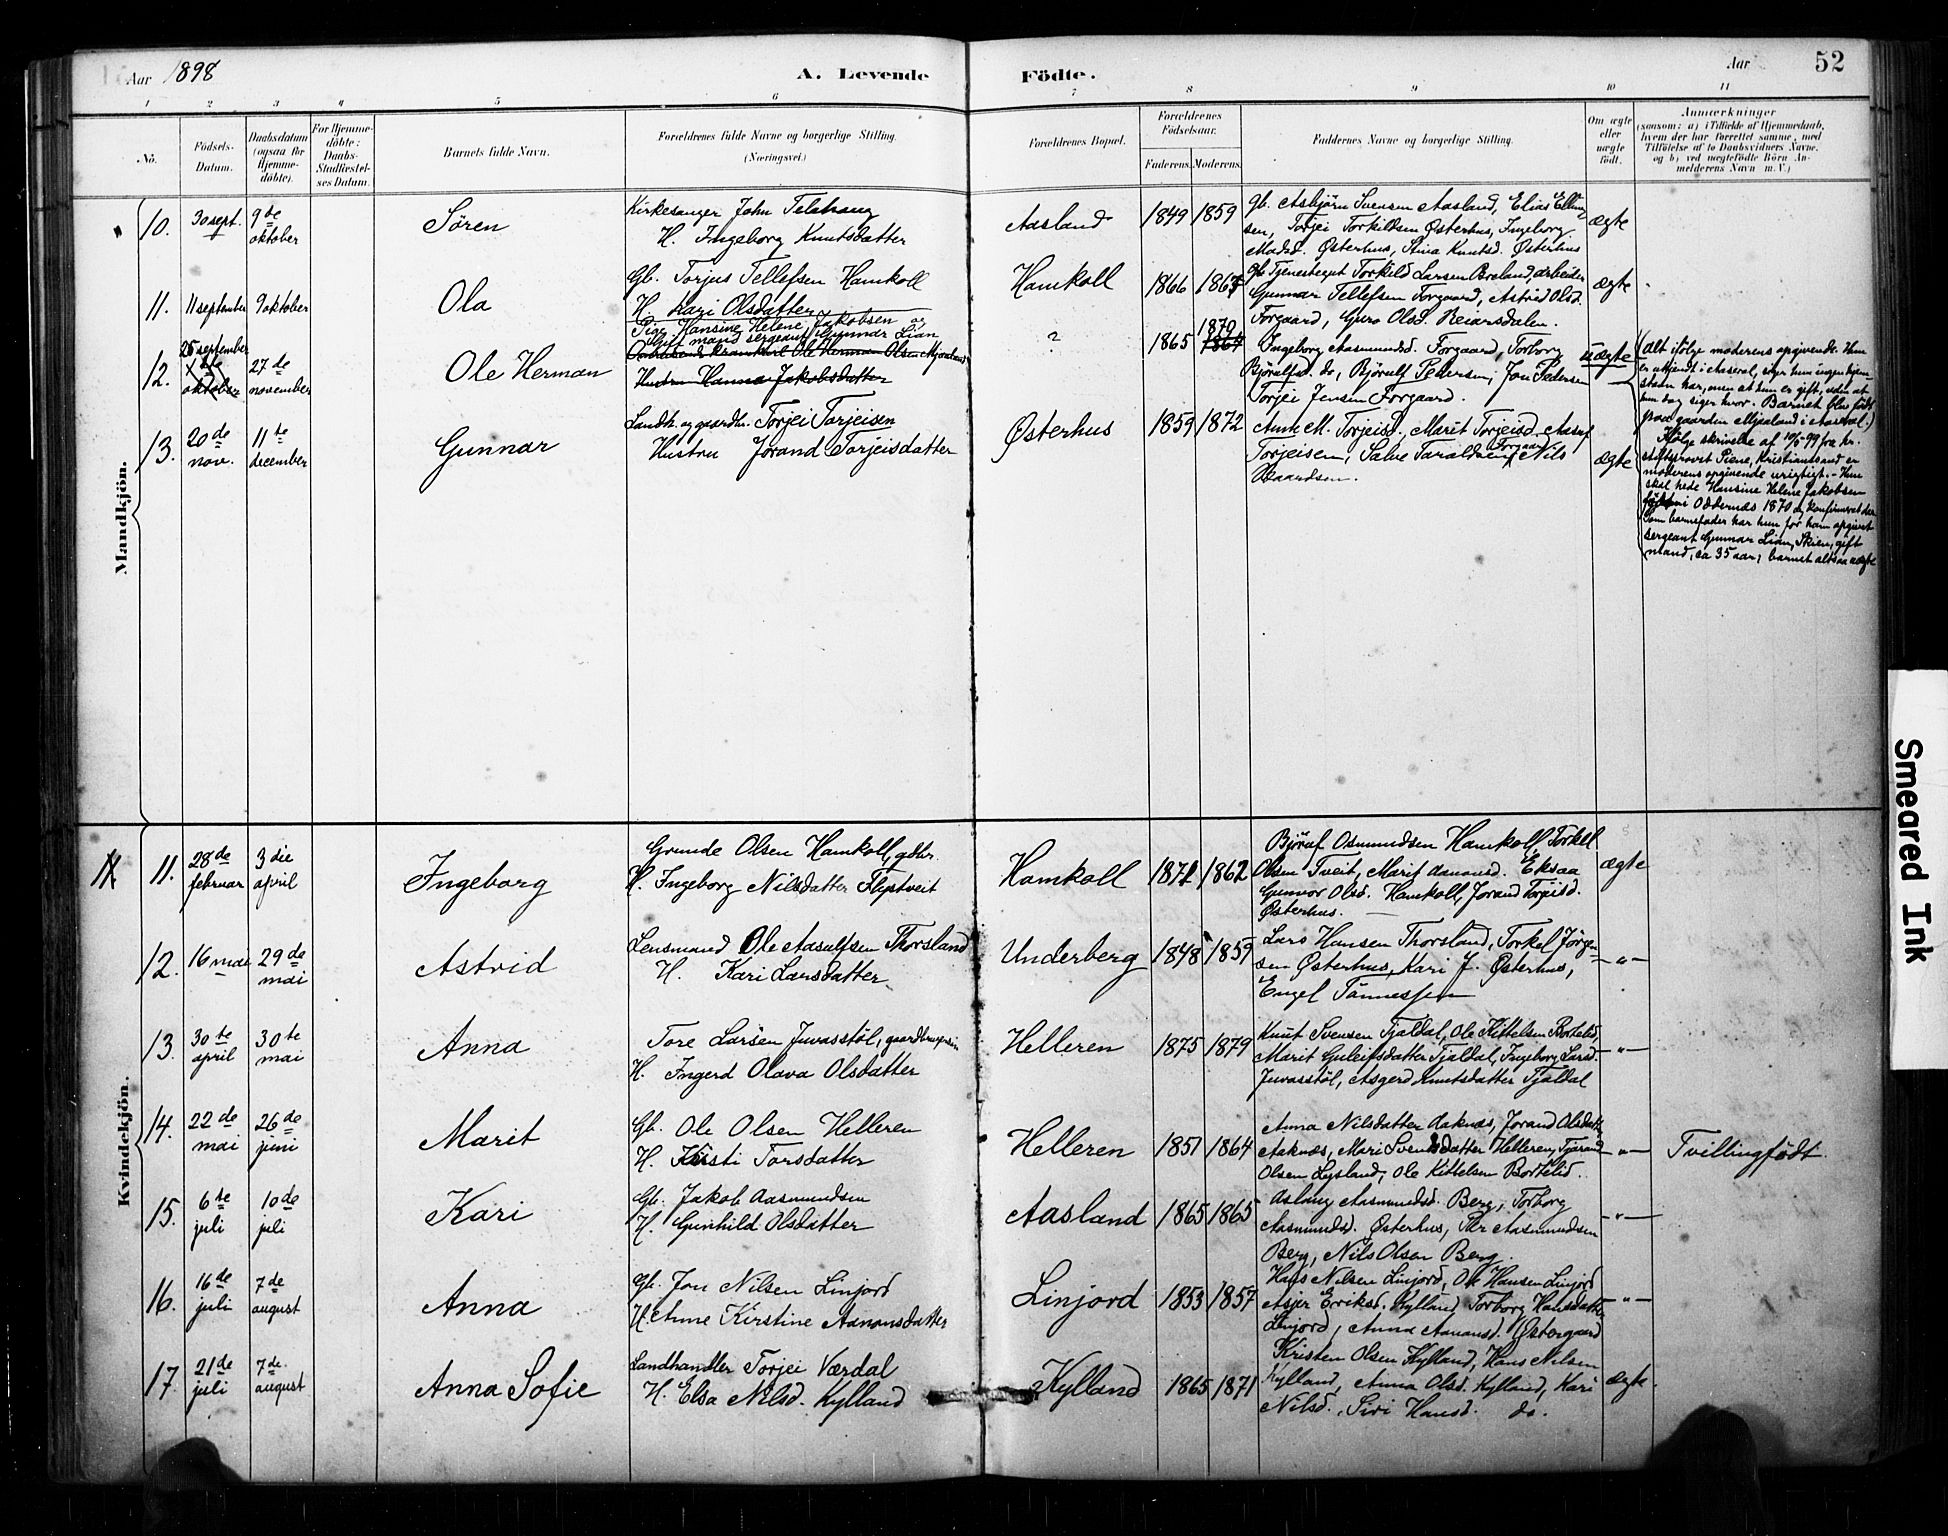 Aar 1898
A. Levende
Födte.
Aar
52
1 2 3 4 5 6 7 8 9 10 11
No.
Födsels-
Datum.
Daabsdatum
(ogsaa for
Hjemme-
döbte).
For Hjemme-
döbte:
Daabs-
Stadfæstel-
ses Datum.
Barnets fulde Navn.
Forældrenes fulde Navne og borgerlige Stilling.
(Næringsvei.)
Forældrenes Bopæl.
Forældrenes
Födselsaar.
Faderens. Moderens.
Faddernes Navne og borgerlige Stilling.
Om ægte
eller
uægte
födt.
Anmærkninger
(saasom: a) i Tilfælde af Hjemmedaab,
hvem der har forrettet samme, med
Tilföielse af to Daabsvidners Navne,
og b) ved uægtefödte Börn An-
melderens Navn m. V.)
Mandkjön.
10.
30 sept.
9de
oktober
Sören
Kirkesanger John
H. Ingeborg Knutsdatter
Aasland
1849 1859
gb. Asbjörn Svensen Aasland, Elias Elling
sen, Torjei Torkildsen Østerhus, Ingeborg
Madsd. Østerhus, Stina Knutsd. Østerhus
ægte
11.
11 september
9 oktober
Ola
Gb. Torjus Tellefsen Hamkoll
H. Kari Olsdatter
Hamkoll
1866
Tjenestegut Torkild Larsen Breland, arbeider
Gunnar Tellefsen Forgaard, Astrid Olsd.
Forgaard, Guro Olsd. Reiarsdalen.
ægte
12.
25 september
oktober
27de
november
Ole Herman
Pige Hansine Helene Jakobsen og
gift mand sergeant Gunnar Lian
Ole Herman Olsen Mjaaland
Hustru Hanna Jakobsdatter
?
1865
1870
1864
Ingeborg Aasmundsd. Forgaard, Torborg
Bjørulfsd. do, Bjørulf Pedersen, Jon Pedersen
Torjei Jensen Forgaard.
uægte
(Alt ifölge moderens opgivende. Hun
er ukjendt i Aaseral, siger hun ingen hjem-
stavn har, men at hun er gift, uden at
hun dog siger hvor. Barnet blev födt
paa gaarden Mjaaland i Aaseral.)
Ifölge skrivelse af 10/5-99 fra hr.
stiftsprovst Piene, Kristianssand er
moderens opgivende urigtigt. - Hun
skal hede Hansine Helene Jakobsen
födt i Oddernæs 1870 og konfirmeret der
Som barnefader har hun for ham opgivet
sergeant Gunnar Lian, Skien, gift
mand, ca 35 aar, barnet altsaa uægte
13.
20de
nov.
11te
december
Gunnar
Landh. og gaardbr. Torjei Torjeisen
Hustru Jorand Torjeisdatter
Østerhus
1859 1872
Anne M. Torjeisd., Marit Torjeisd., Aasuf
Torjeisen, Salve Taraldsen Forgaard, Nils
Baardsen.
ægte
Kvindekjön.
11.
28de
februar
3die
april
Ingeborg
Grunde Olsen Hamkoll, gdbr.
H. Ingeborg Nilsdatter Fligstveit
Hamkoll
1871 1862
Björuf Osmundsen Hamkoll, Torkel
Olsen Tveit, Marit Aanonsd. Eksaa
Gunvor Olsd. Hamkoll, Jorand Torjeisd.
Østerhus.
ægte
12.
16 mai
29de
mai
Astrid
Lensmand Ole Aasulfsen Thorsland
H. Kari Larsdatter
Underberg
1848 1859
Lars Hansen Thorsland, Torkel Jörgen-
sen Østerhus, Kari J. Østerhus,
Engel Tönnessen
-"-
13.
30te
april
30te
mai
Anna
Tore Larsen Juvasstöl,
H. Ingerd Olava Olsdatter
Helleren
1875 1879
Knut Svensen Tjaldal, Ole Kittelsen Bortelid,
Marit Guleifsdatter Tjaldal, Ingeborg Larsd.
Juvasstöl, Asgerd Knutsdatter Tjaldal
-"-
14.
22de
mai
26de
juni
Marit
Gb. Ole Olsen Helleren
H. Kirsti Torsdatter
Helleren
1851 1864
Anna Nilsdatter Aaknæs, Jorand Olsdatter
Aaknæs, Mari Svensdatter Helleren, Tjöran
Olsen Lysland, Ole Kittelsen Bortelid.
-"-
Tvillingfödt.
15.
6te
juli
10de
juli
Kari
Gb. Jakob Aasmundsen
H. Gunhild Olsdatter
Aasland
1865 1865
Aslaug Aasmundsd. Berg, Torborg
Aasmundsd. Østerhus, Per Aasmundsen
Berg, Nils Olsen Berg.
-"-
16.
16de
juli
7de
august
Anna
Gb. Jon Nilsen Linjord
H. Anne Kirstine Aanonsdatter
Linjord
1853 1857
Hans Nilsen Linjord, Ole Hansen Linjord
Asjer Eriksd. Kylland, Torborg Hansdatter
Linjord, Anna Aanonsd. Östergaard
-"-
17.
21de
juli
7de
august
Anna Sofie
Landhandler Torjei Værdal
H. Elsa Nilsd. Kylland
Kylland
1865 1871
Kristen Olsen Kylland, Hans Nilsen
Kylland, Anna Olsd. Kylland, Kari
Nilsd., Siri Hansd. do.
ægte.
Smeared Ink